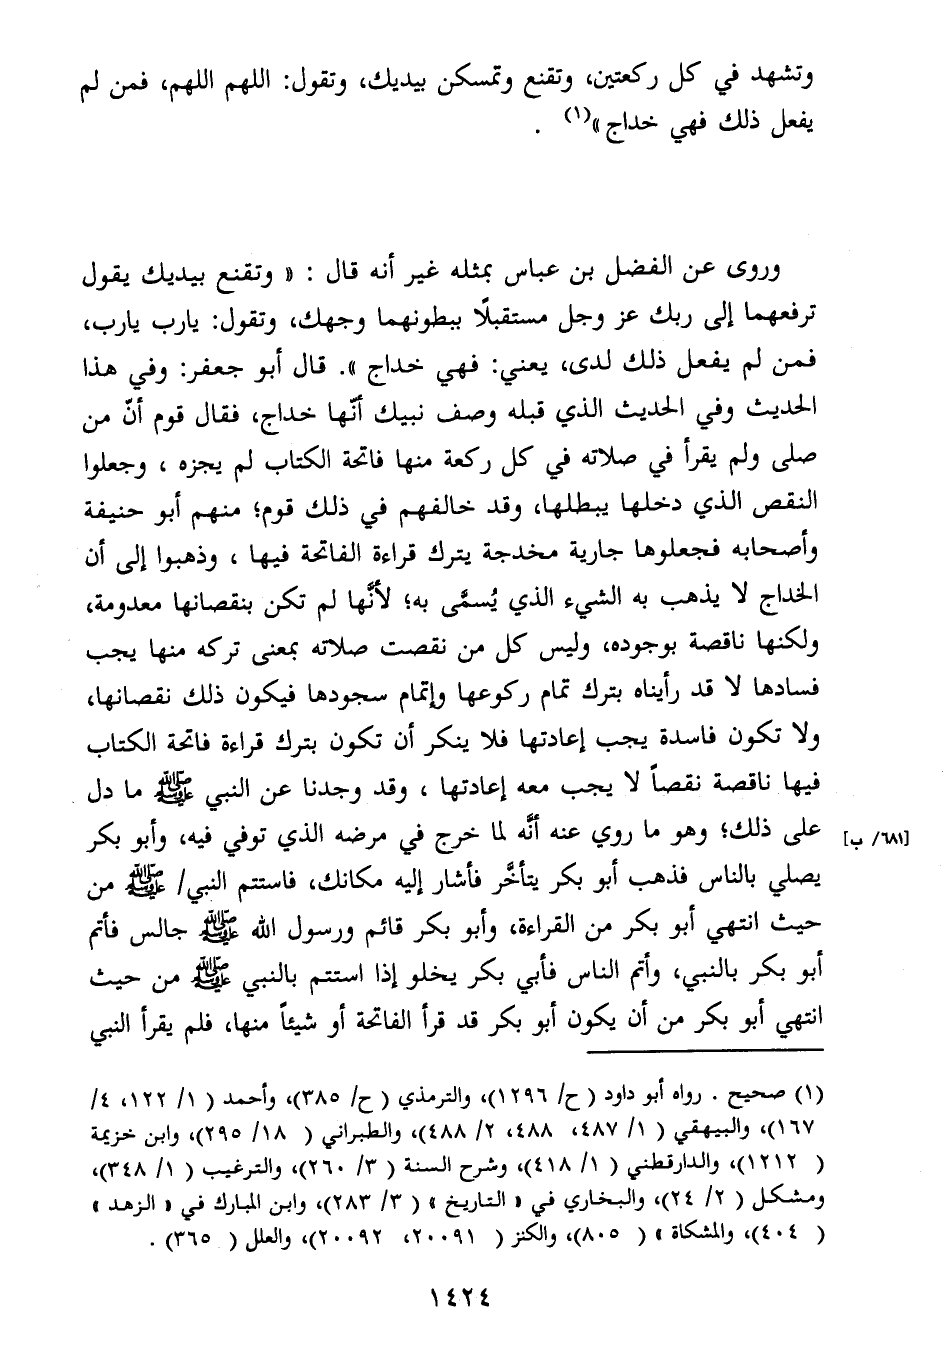 وتشهد في كل ركعتين، وتقنع وتمسكن بيديك، وتقول: اللهم اللهم، فمن لم
يفعل ذلك فهي خداج »(١) .
وروى عن الفضل بن عباس بمثله غير أنه قال : « وتقنع بيديك يقول
ترفعهما إلى ربك عز وجل مستقبلًا ببطونهما وجهك، وتقول: يارب يارب،
فمن لم يفعل ذلك لدى، يعني: فهي خداج ». قال أبو جعفر: وفي هذا
الحديث وفي الحديث الذي قبله وصف نبيك أنّها خداج، فقال قوم أنّ من
صلى ولم يقرأ في صلاته في كل ركعة منها فاتحة الكتاب لم يجزه ، وجعلوا
النقص الذي دخلها يبطلها، وقد خالفهم في ذلك قوم؛ منهم أبو حنيفة
وأصحابه فجعلوها جارية مخدجة يترك قراءة الفاتحة فيها ، وذهبوا إلى أن
الخداج لا يذهب به الشيء الذي يُسمَّى به؛ لأنَّها لم تكن بنقصانها معدومة،
ولكنها ناقصة بوجوده، وليس كل من نقصت صلاته بمعنى تركه منها يجب
فسادها لا قد رأيناه بترك تمام ركوعها وإتمام سجودها فيكون ذلك نقصانها،
ولا تكون فاسدة يجب إعادتها فلا ينكر أن تكون بترك قراءة فاتحة الكتاب
فيها ناقصة نقصاً لا يجب معه إعادتها ، وقد وجدنا عن النبي ﷺ ما دل
على ذلك؛ وهو ما روي عنه أنَّه لما خرج في مرضه الذي توفي فيه، وأبو بكر
[٦٨١/ ب]
يصلي بالناس فذهب أبو بكر يتأخَّر فأشار إليه مكانك، فاستتم النبي/ ﷺ من
حيث انتهي أبو بكر من القراءة، وأبو بكر قائم ورسول الله ﷺ جالس فأتم
أبو بكر بالنبي، وأتم الناس فأبي بكر يخلو إذا استتم بالنبي ﷺ من حيث
انتهي أبو بكر من أن يكون أبو بكر قد قرأ الفاتحة أو شيئاً منها، فلم يقرأ النبي
(١) صحيح . رواه أبو داود ( ح/ ١٢٩٦)، والترمذي ( ح/ ٣٨٥)، وأحمد ( ١/ ١٢٢، ٤/
١٦٧)، والبيهقي ( ١/ ٤٨٧، ٤٨٨، ٢/ ٤٨٨)، والطبراني ( ١٨/ ٢٩٥)، وابن خزيمة
( ١٢١٢)، والدارقطني ( ١/ ٤١٨)، وشرح السنة ( ٣/ ٢٦٠)، والترغيب ( ١/ ٣٤٨)،
ومشكل ( ٢/ ٢٤)، والبخاري في « التاريخ » ( ٣/ ٢٨٣)، وابن المبارك في « الزهد »
( ٤٠٤)، والمشكاة » ( ٨٠٥)، والكنز ( ٢٠٠٩١، ٢٠٠٩٢)، والعلل ( ٣٦٥) .
١٤٢٤